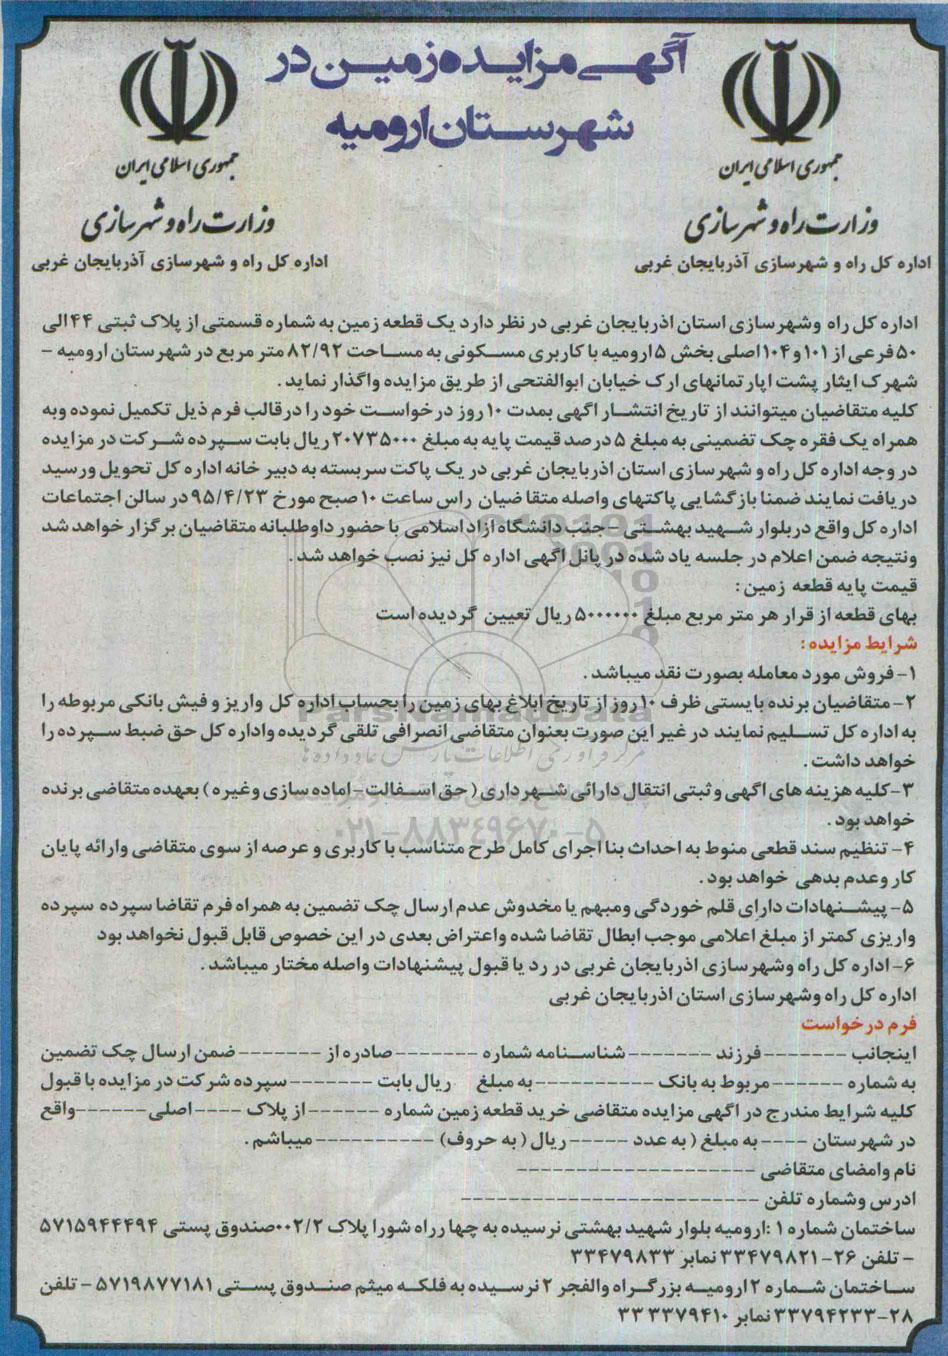 آگهی مزایده زمین در
شهرستان ارومیه
جمهوری اسلامی ایران
وزارت راه و شهرسازی
اداره کل راه و شهرسازی آذربایجان غربی
جمهوری اسلامی ایران
وزارت راه و شهرسازی
اداره کل راه و شهرسازی آذربایجان غربی
اداره کل راه وشهرسازی استان اذربایجان غربی در نظر دارد یک قطعه زمین به شماره قسمتی از پلاک ثبتی ۴۴ الی
۵۰ فرعی از ۱۰۱ و ۱۰۴ اصلی بخش ۵ ارومیه با کاربری مسکونی به مساحت ۸۲/۹۲ متر مربع در شهرستان ارومیه –
شهرک ایثار پشت اپارتمانهای ارک خیابان ابوالفتحی از طریق مزایده واگذار نماید .
کلیه متقاضیان میتوانند از تاریخ انتشار اگهی بمدت ۱۰ روز درخواست خود را درقالب فرم ذیل تکمیل نموده وبه
همراه یک فقره چک تضمینی به مبلغ ۵ درصد قیمت پایه به مبلغ ۲۰۷۳۵۰۰۰ ریال بابت سپرده شرکت در مزایده
در وجه اداره کل راه و شهرسازی استان اذربایجان غربی در یک پاکت سربسته به دبیر خانه اداره کل تحویل ورسید
دریافت نمایند ضمنا بازگشایی پاکتهای واصله متقاضیان راس ساعت ۱۰ صبح مورخ ۹۵/۴/۲۳ در سالن اجتماعات
اداره کل واقع دربلوار شهید بهشتی – جنب دانشگاه ازاد اسلامی با حضور داوطلبانه متقاضیان برگزار خواهد شد
ونتیجه ضمن اعلام در جلسه یاد شده در پانل اگهی اداره کل نیز نصب خواهد شد .
قیمت پایه قطعه زمین :
بهای قطعه از قرار هر متر مربع مبلغ ۵۰۰۰۰۰۰ ریال تعیین گردیده است
شرایط مزایده :
۱- فروش مورد معامله بصورت نقد میباشد .
۲- متقاضیان برنده بایستی ظرف ۱۰ روز از تاریخ ابلاغ بهای زمین را بحساب اداره کل واریز و فیش بانکی مربوطه را
به اداره کل تسلیم نمایند در غیر این صورت بعنوان متقاضی انصرافی تلقی گردیده واداره کل حق ضبط سپرده را
خواهد داشت .
۳- کلیه هزینه های اگهی و ثبتی انتقال دارائی شهرداری ( حق اسفالت – اماده سازی وغیره ) بعهده متقاضی برنده
خواهد بود .
۴- تنظیم سند قطعی منوط به احداث بنا اجرای کامل طرح متناسب با کاربری و عرصه از سوی متقاضی وارائه پایان
کار وعدم بدهی خواهد بود .
۵- پیشنهادات دارای قلم خوردگی ومبهم یا مخدوش عدم ارسال چک تضمین به همراه فرم تقاضا سپرده سپرده
واریزی کمتر از مبلغ اعلامی موجب ابطال تقاضا شده واعتراض بعدی در این خصوص قابل قبول نخواهد بود
۶- اداره کل راه وشهرسازی اذربایجان غربی در رد یا قبول پیشنهادات واصله مختار میباشد .
اداره کل راه وشهرسازی استان اذربایجان غربی
فرم درخواست
اینجانب -------- فرزند -------- شناسنامه شماره -------- صادره از -------- ضمن ارسال چک تضمین
به شماره ------ مربوط به بانک ---------- به مبلغ ریال بابت ------- سپرده شرکت در مزایده با قبول
کلیه شرایط مندرج در اگهی مزایده متقاضی خرید قطعه زمین شماره ------ از پلاک ---- اصلی ------ واقع
در شهرستان ---- به مبلغ ( به عدد ----- ریال ( به حروف) ---------- میباشم .
نام وامضای متقاضی --------------------
ادرس وشماره تلفن ------------------------
ساختمان شماره ۱ :ارومیه بلوار شهید بهشتی نرسیده به چهارراه شورا پلاک ۰۰۲/۲ صندوق پستی ۵۷۱۵۹۴۴۴۹۴
– تلفن ۲۶-۳۳۴۷۹۸۲۱ نمابر ۳۳۴۷۹۸۳۳
ساختمان شماره ۲ ارومیه بزرگراه والفجر ۲ نرسیده به فلکه میثم صندوق پستی ۵۷۱۹۸۷۷۱۸۱ – تلفن
۲۸-۳۳۷۹۴۲۳۳ نمابر ۳۳۳۷۹۴۱۰ ۳۳
ParsNamadData
۰۲۱-۸۸۳۴۹۶۷۰-۵